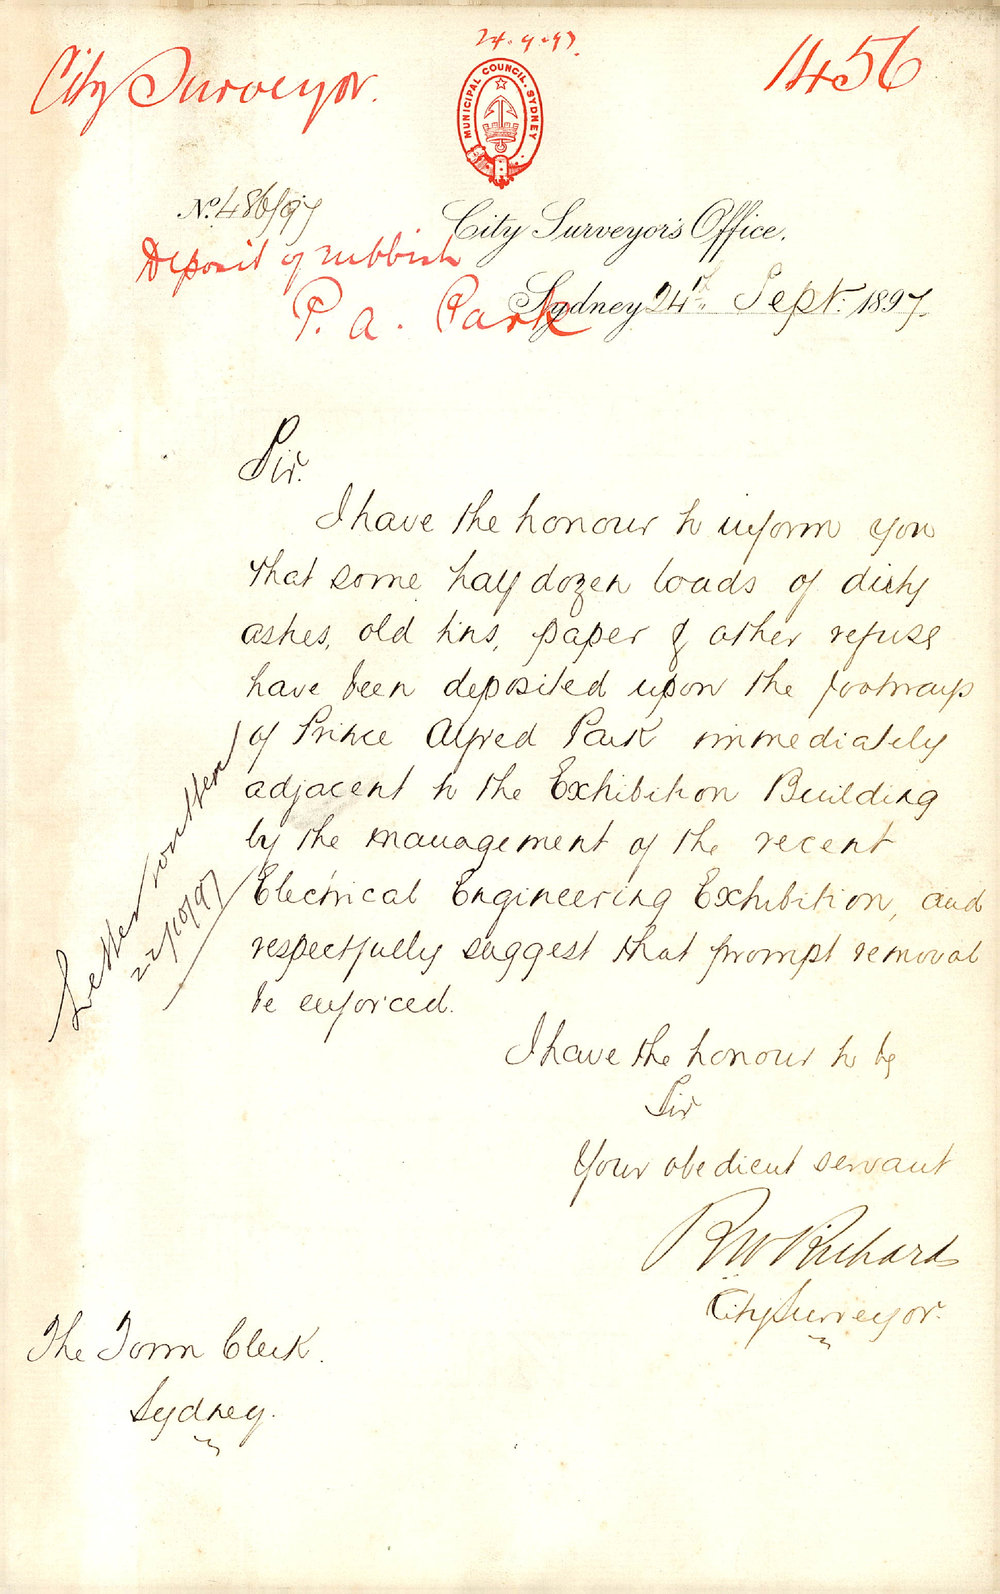 24.9.97.
City Surveyor.
1456
MUNICIPAL COUNCIL. SYDNEY
No. 486/97
City Surveyor's Office.
Deposit of rubbish
P. A. Park
Sydney 24th Sept. 1897.
Sir.
I have the honour to inform you
that some half dozen loads of dirty
ashes, old tins, paper & other refuse
have been deposited upon the footways
of Prince Alfred Park immediately
adjacent to the Exhibition Building
by the management of the recent
Electrical Engineering Exhibition, and
respectfully suggest that prompt removal
be enforced.
Letter written
22/10/97
I have the honour to be
Sir
Your obedient servant
R W Richards
City Surveyor.
The Town Clerk.
Sydney.